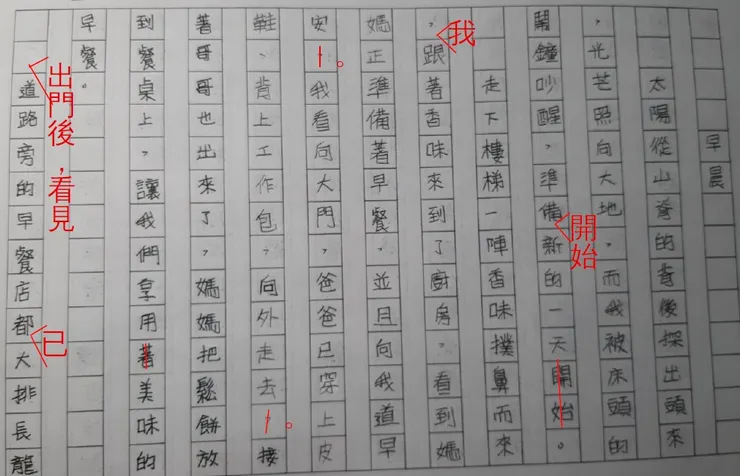 早晨
太陽從山脊的背後探出頭來
，光芒照向大地，而我被床頭的
鬧鐘吵醒，準備新的一天開始。
開始
走下樓梯一陣香味撲鼻而來
，跟著香味來到了廚房。看到媽
我
媽正準備著早餐，並且向我道早
安，我看向大門，爸爸已穿上皮
。
鞋、背上工作包，向外走去，接
。
著哥哥也出來了，媽媽把鬆餅放
到餐桌上，讓我們享用著美味的
早餐。
出門後，看見
道路旁的早餐店都大排長龍
已